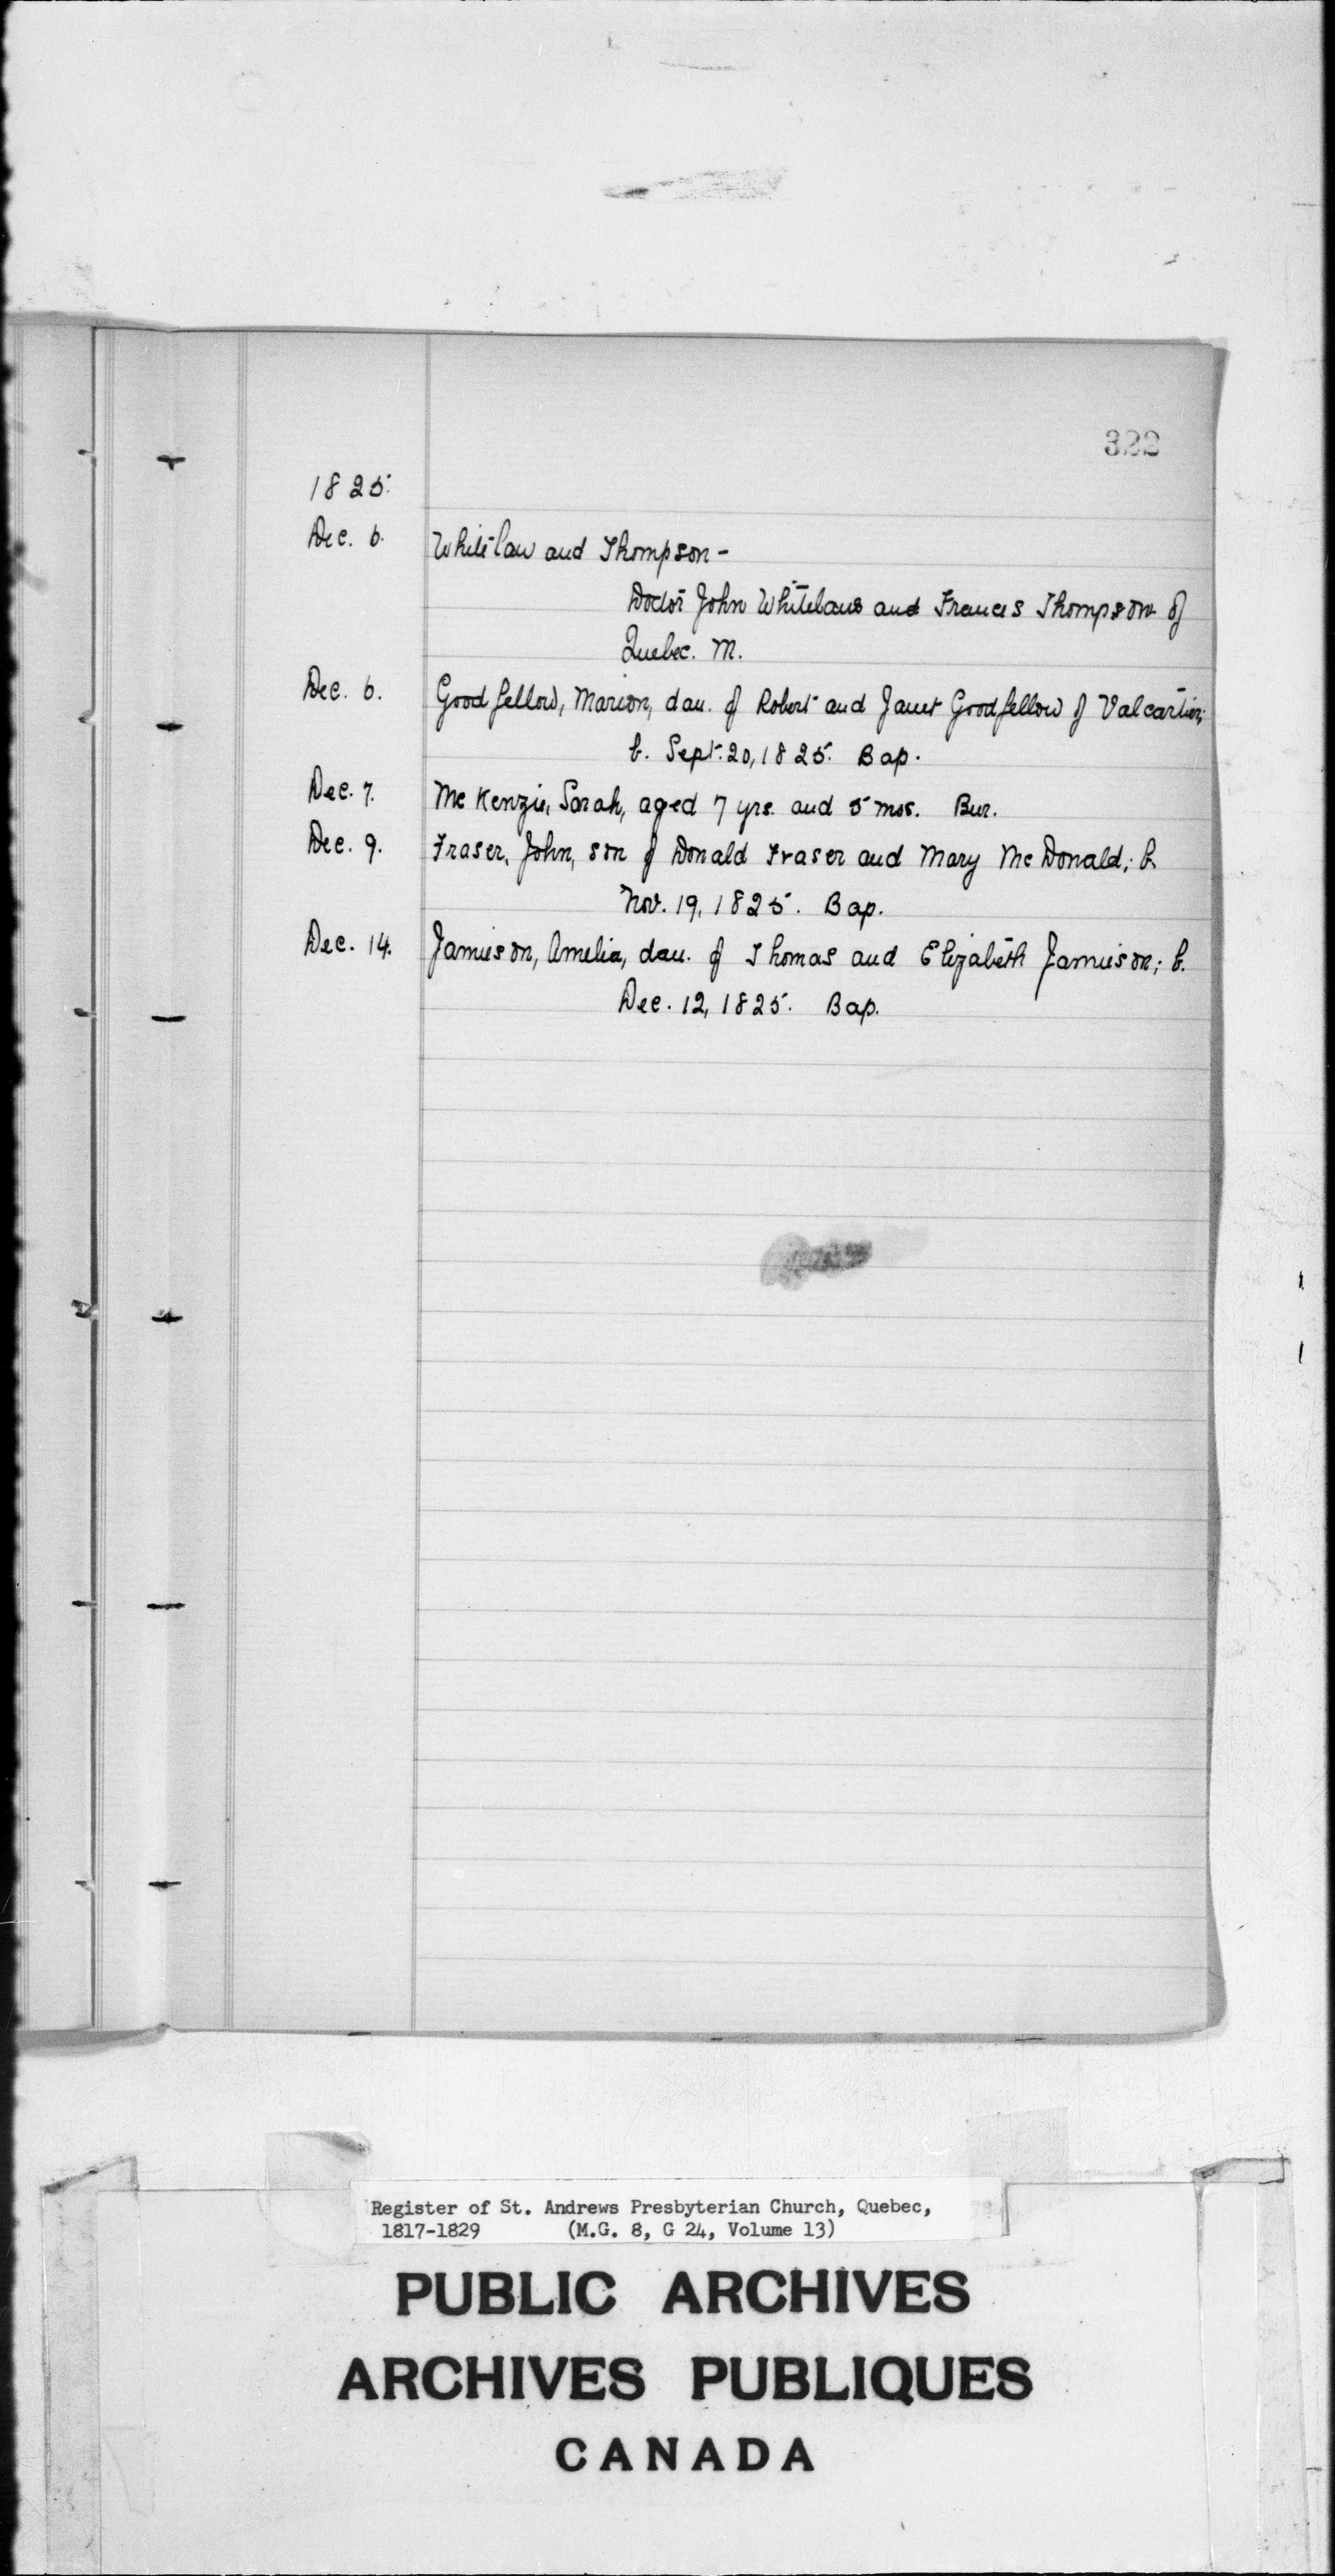 322
1825.
Dec. 6. Whitelaw and Thompson -
Doctor John Whitelaw and Frances Thompson of
Quebec. M.
Dec. 6. Goodfellow, Marion, dau. of Robert and Janet Goodfellow of Valcartier;
b. Sept. 20, 1825. Bap.
Dec. 7. McKenzie, Sarah, aged 7 yrs. and 5 mos. Bur.
Dec. 9. Fraser, John, son of Donald Fraser and Mary McDonald; b.
Nov. 19, 1825. Bap.
Dec. 14. Jamieson, Amelia, dau. of Thomas and Elizabeth Jamieson; b.
Dec. 12, 1825. Bap.
Register of St. Andrews Presbyterian Church, Quebec,
1817-1829 (M.G. 8, G 24, Volume 13)
PUBLIC ARCHIVES
ARCHIVES PUBLIQUES
CANADA